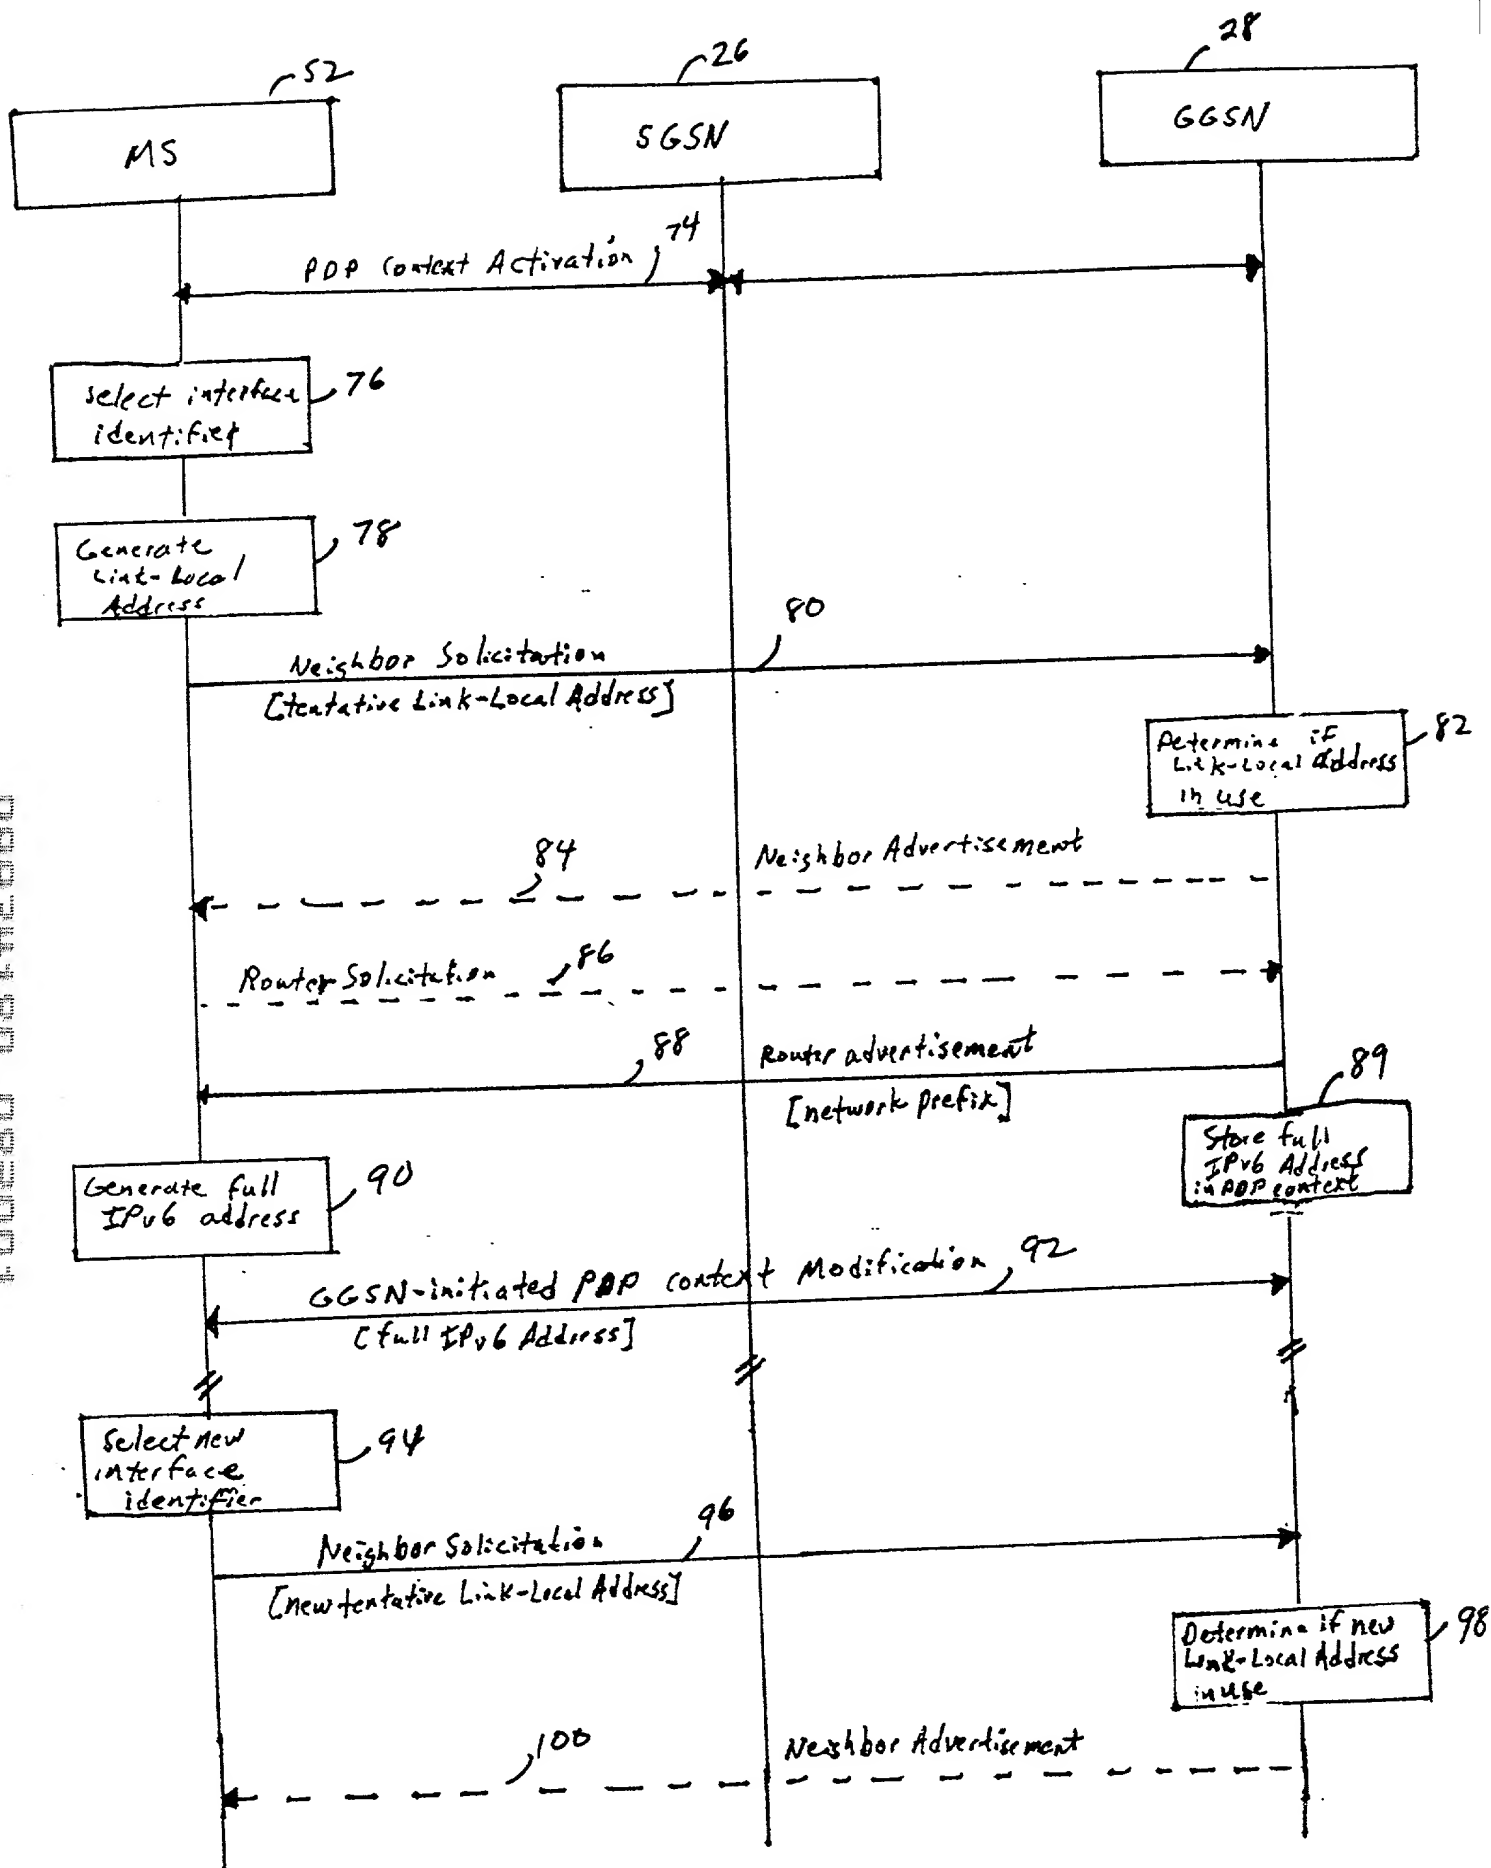 52
26
28
MS
SGSN
GGSN
74
PDP Context Activation
76
Select interface
identifier
78
Generate
Link-Local
Address
80
Neighbor Solicitation
[tentative Link-Local Address]
82
Determine if
Link-Local Address
in use
84
Neighbor Advertisement
86
Router Solicitation
88
Router advertisement
[network prefix]
89
Store full
IPv6 Address
in PDP context
90
Generate full
IPv6 address
92
GGSN-initiated PDP context Modification
[full IPv6 Address]
94
Select new
interface
identifier
96
Neighbor Solicitation
[new tentative Link-Local Address]
98
Determine if new
Link-Local Address
in use
100
Neighbor Advertisement